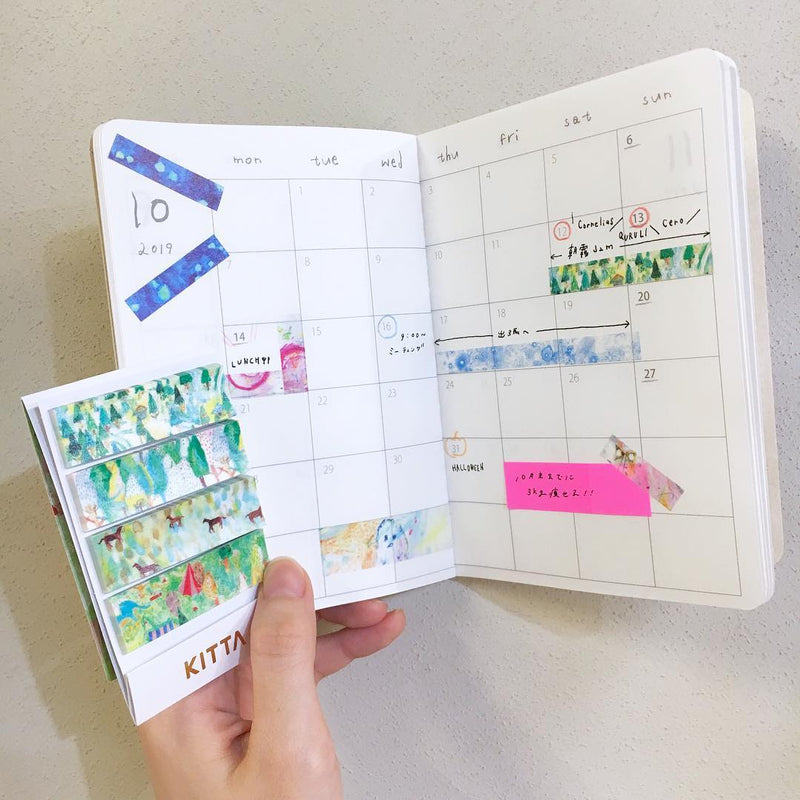 mon tue wed thu fri sat sun
10
2019
1 2 3 4 5 6
7 9 10 11 12 13
Cornelius/
QURULI\ Cero/
朝霧 Jam
14 15 16 17 18 19 20
LUNCH!!
9:00〜
ミーティング
出張へ
21 22 23 24 25 26 27
29 30 31
HALLOWEEN
10月末までに
3kg痩せる!!
KITTA